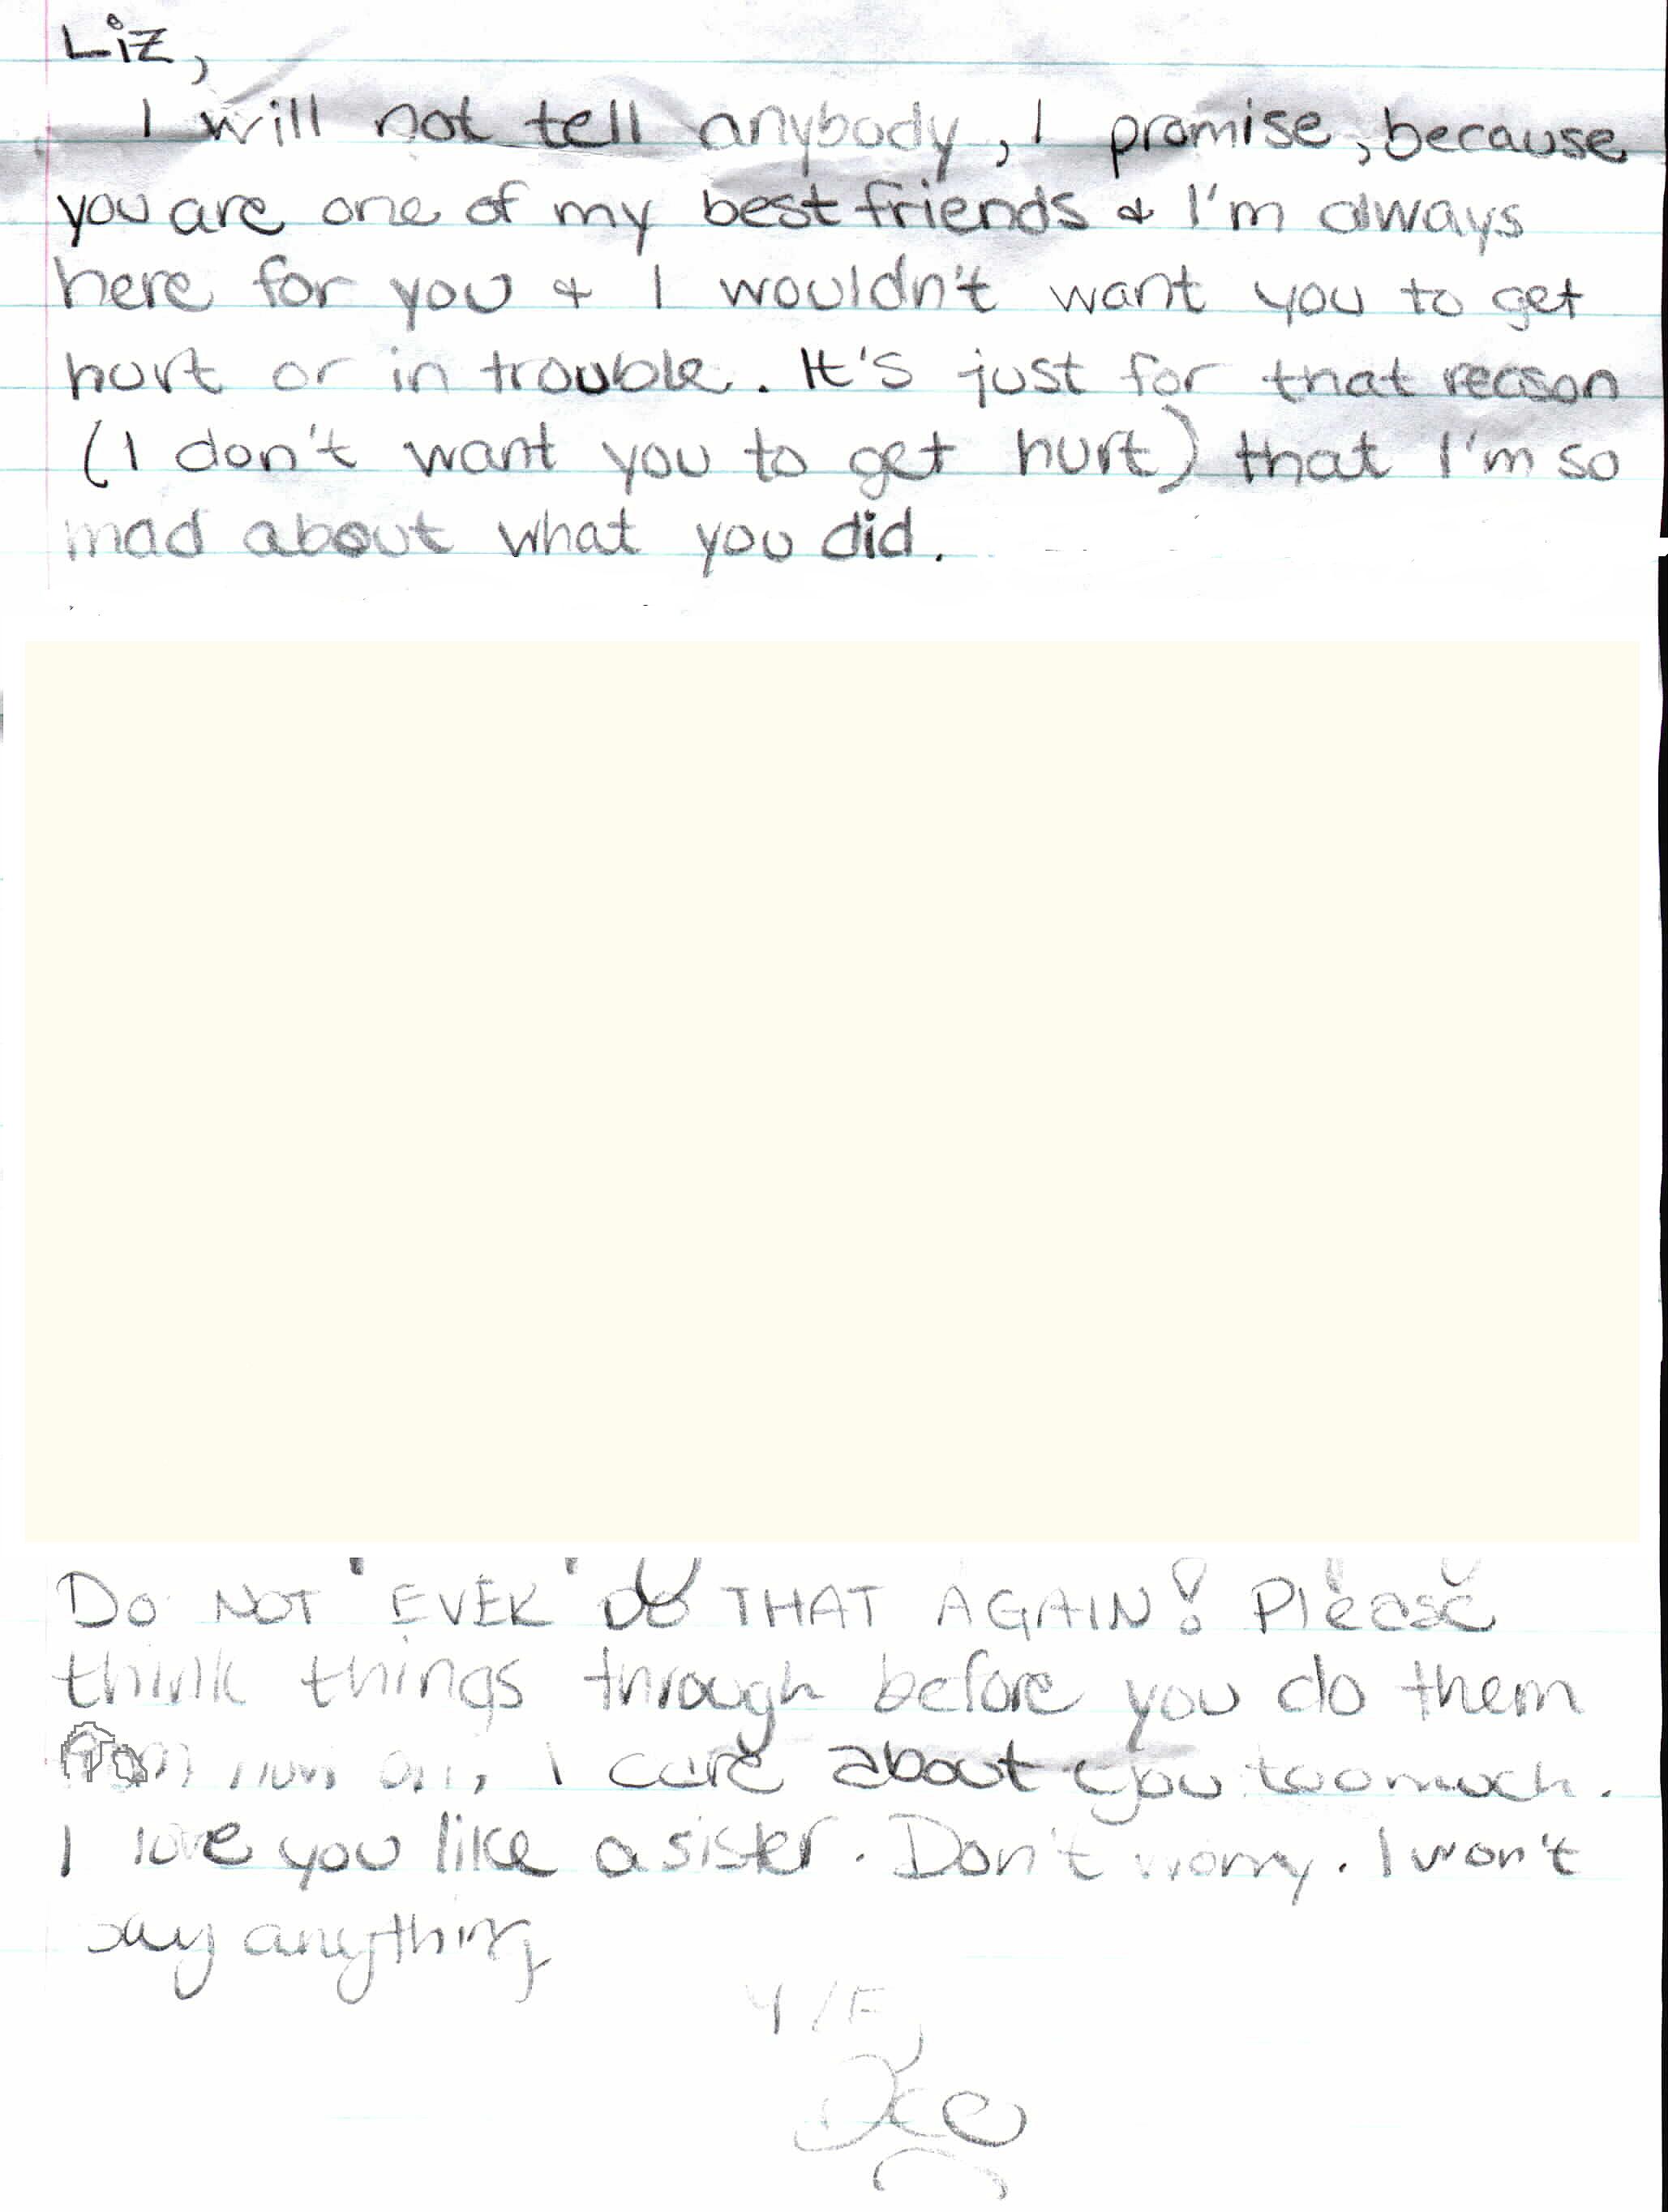 Liz,
I will not tell anybody, I promise, because
you are one of my best friends & I'm always
here for you & I wouldn't want you to get
hurt or in trouble. It's just for that reason
(I don't want you to get hurt) that I'm so
mad about what you did.
DO NOT EVER DO THAT AGAIN! Please
think things through before you do them
from now on, I care about you too much.
I love you like a sister. Don't worry. I won't
say anything
Y/F,